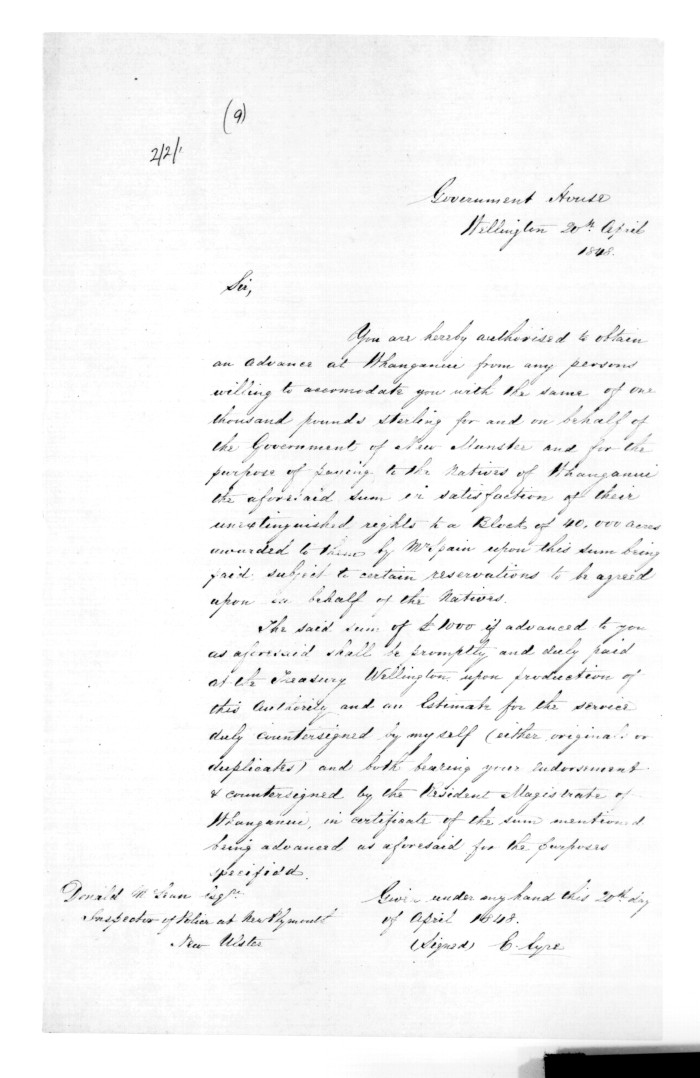 (9)
2/2/1
Government House
Wellington 20th April
1848.
Sir,
You are hereby authorised to obtain
an advance at Whanganui from any persons
willing to accomodate you with the same of one
thousand pounds sterling for and on behalf of
the Government of New Munster and for the
purpose of paying to the Natives of Whanganui
the aforesaid sum in satisfaction of their
unextinguished rights to a Block of 40,000 acres
awarded to them by Mr Spain upon this sum being
paid, subject to certain reservations to be agreed
upon on behalf of the Natives.
The said sum of £1000 if advanced to you
as aforesaid shall be promptly and duly paid
at the Treasury Wellington, upon production of
this Authority and an Estimate for the service
duly countersigned by myself (either originals or
duplicates) and both bearing your endorsement
& countersigned by the Resident Magistrate of
Whanganui, in certificate of the sum mentioned
being advanced as aforesaid for the purposes
specified.
Given under my hand this 20th day
of April 1848.
(Signed) E. Eyre
Donald McLean Esqre
Inspector of Police at New Plymouth
New Ulster